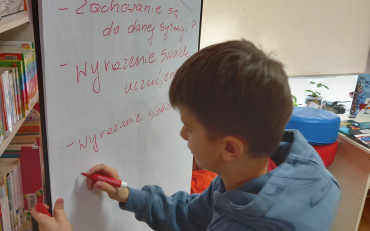 - Zachowanie się
do danej sytuacji
- Wyrażenie swoich
uczuć
- Wyrażanie